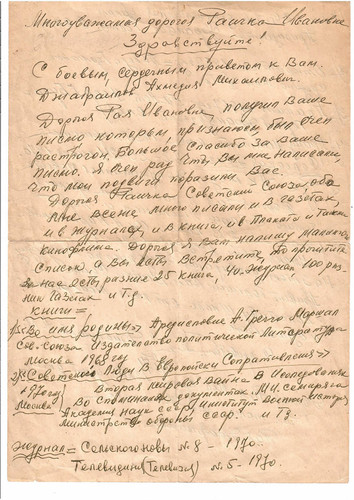 Многоуважаемая дорогая Раичка Ивановна
Здравствуйте!
С боевым, сердечным приветом к Вам.
Михайлович.
Дорогая Рая Ивановна, получил Ваше
письмо которым, признатся, был очен
растрогон. Большое спасибо за ваше
писмо. Я очен рад что, Вы мне написали,
что мои подвиги поразили Вас.
Дорогая Раичка Советский Союза, оба
мне всене много писали и в газетах,
и в журналах, и в книга, и в плаката и также
кинофилма. Дорогая я Вам напишу маленкой
список, а Вы есть встретите, то прочитайте
За нас есть разние 25 книга, 40 журнал, 100 раз-
нии газетах и т.д.
книги =
1) «Во имя родины» Предисловие А. Гречко Маршал
Сов. Союза. Издательство политической литературы
Москва 1968 году
2) «Советского Люди в европейски Сопративления»
1970 году Вторая мировая война в исследования
Москва Во спомынания документах. М.И. Семиряга
Академия наук СССР, институт военной истории
Министерств обороны СССР. и т.д.
Журнал = Семскогоновы N. 8 – 1970.
Телевидиня (Телевизя) N. 5 – 1970.